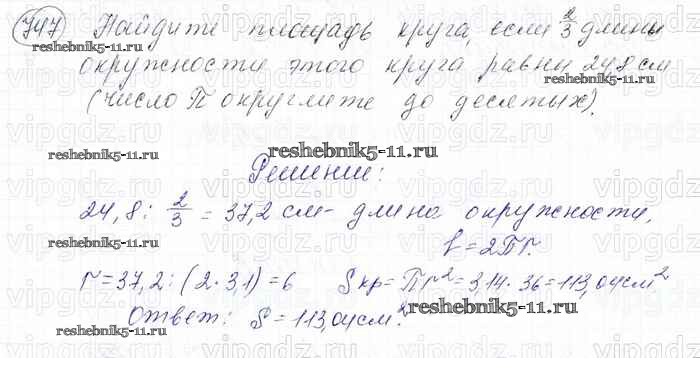 747 Найдите площадь круга, если 2/3 длины
окружности этого круга равны 24,8 см
(число П округлите до десятых).
Решение:
24,8 : 2/3 = 37,2 см - длина окружности,
l = 2Пr.
r = 37,2 : (2 · 3,1) = 6 Sкр = Пr² = 3,14 · 36 = 113,04 см²
Ответ: S = 113,04 см².
reshebnik5-11.ru
reshebnik5-11.ru
reshebnik5-11.ru
reshebnik5-11.ru
reshebnik5-11.ru
reshebnik5-11.ru
reshebnik5-11.ru
vipgdz